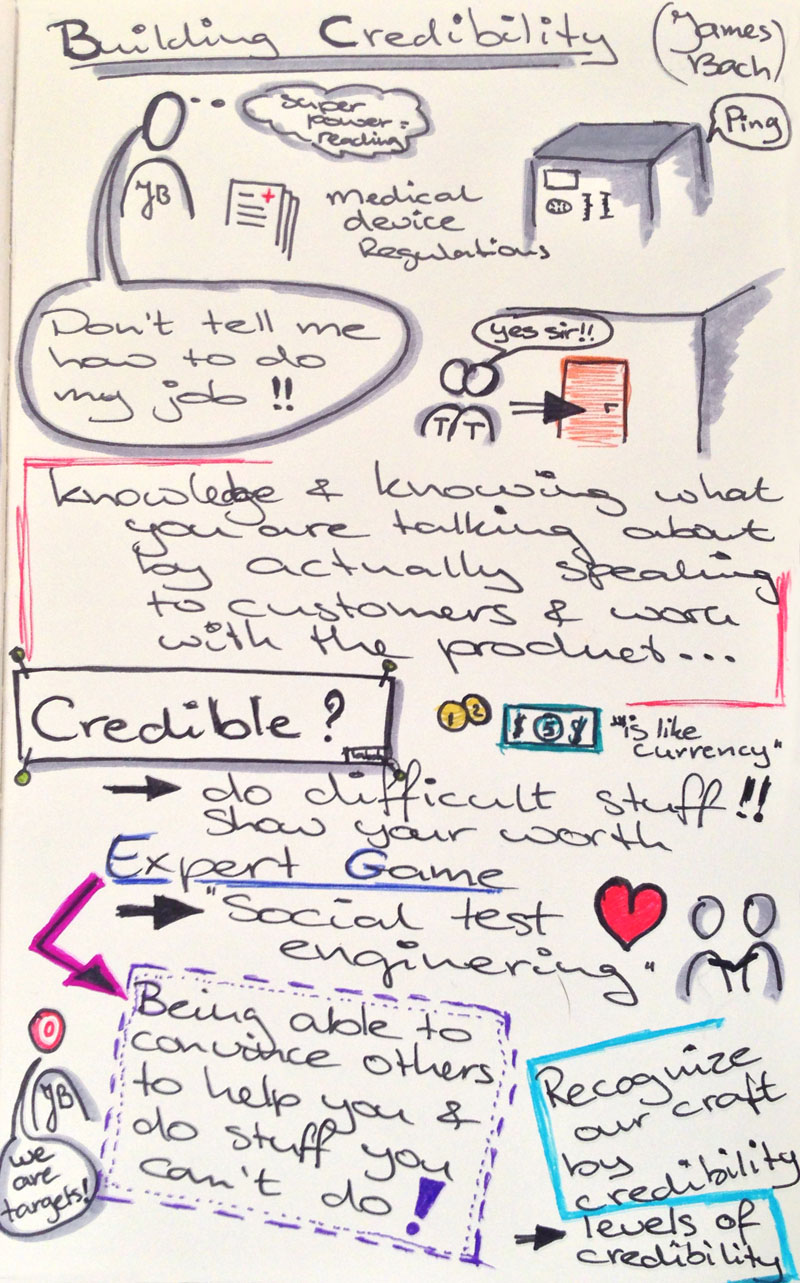 Building Credibility
(James
Bach)
super
power =
reading
Ping
JB
medical
device
Regulations
Don't tell me
how to do
my job !!
yes sir!!
T T
knowledge & knowing what
you are talking about
by actually speaking
to customers & work
with the product...
Credible ?
1 2
$ 5 $
"is like
currency"
→ do difficult stuff!!
show your worth
Expert Game
→ "Social test
enginering"
Being able to
convince others
to help you &
do stuff you
can't do !
JB
we
are
targets!
Recognize
our craft
by
credibility
→ levels of
credibility